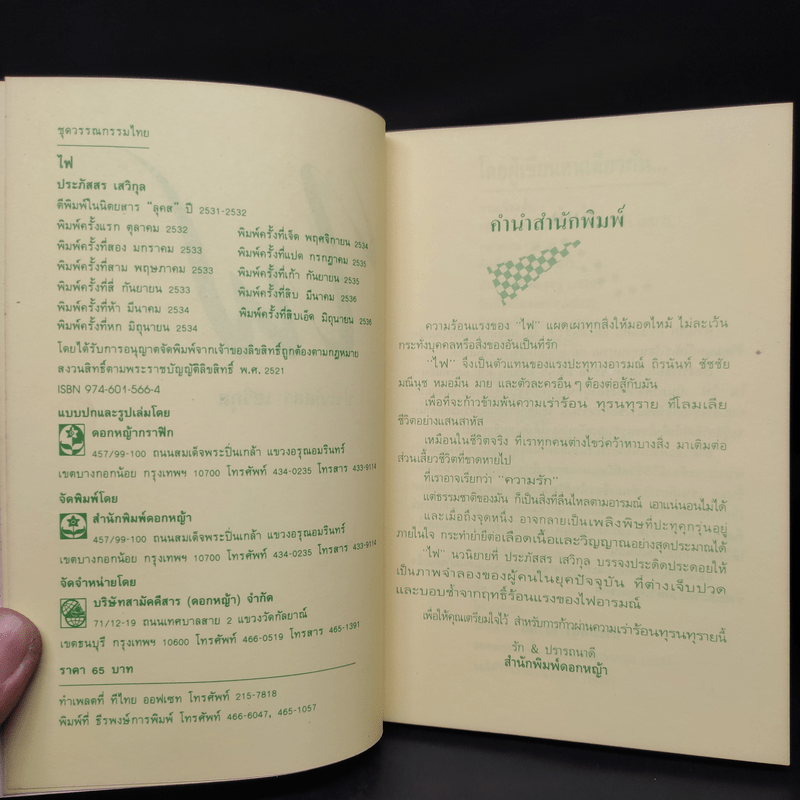 ชุดวรรณกรรมไทย
ไฟ
ประภัสสร เสวิกุล
ตีพิมพ์ในนิตยสาร "ลุคส" ปี 2531-2532
พิมพ์ครั้งแรก ตุลาคม 2532
พิมพ์ครั้งที่สอง มกราคม 2533
พิมพ์ครั้งที่สาม พฤษภาคม 2533
พิมพ์ครั้งที่สี่ กันยายน 2533
พิมพ์ครั้งที่ห้า มีนาคม 2534
พิมพ์ครั้งที่หก มิถุนายน 2534
พิมพ์ครั้งที่เจ็ด พฤศจิกายน 2534
พิมพ์ครั้งที่แปด กรกฎาคม 2535
พิมพ์ครั้งที่เก้า กันยายน 2535
พิมพ์ครั้งที่สิบ มีนาคม 2536
พิมพ์ครั้งที่สิบเอ็ด มิถุนายน 2536
โดยได้รับการอนุญาตจัดพิมพ์จากเจ้าของลิขสิทธิ์ถูกต้องตามกฎหมาย
สงวนสิทธิ์ตามพระราชบัญญัติลิขสิทธิ์ พ.ศ. 2521
ISBN 974-601-566-4
แบบปกและรูปเล่มโดย
ดอกหญ้ากราฟิก
457/99-100 ถนนสมเด็จพระปิ่นเกล้า แขวงอรุณอมรินทร์
เขตบางกอกน้อย กรุงเทพฯ 10700 โทรศัพท์ 434-0235 โทรสาร 433-9114
จัดพิมพ์โดย
สำนักพิมพ์ดอกหญ้า
457/99-100 ถนนสมเด็จพระปิ่นเกล้า แขวงอรุณอมรินทร์
เขตบางกอกน้อย กรุงเทพฯ 10700 โทรศัพท์ 434-0235 โทรสาร 433-9114
จัดจำหน่ายโดย
บริษัทสามัคคีสาร (ดอกหญ้า) จำกัด
71/12-19 ถนนเทศบาลสาย 2 แขวงวัดกัลยาณ์
เขตธนบุรี กรุงเทพฯ 10600 โทรศัพท์ 466-0519 โทรสาร 465-1391
ราคา 65 บาท
ทำเพลตที่ ทีไทย ออฟเซท โทรศัพท์ 215-7818
พิมพ์ที่ ธีรพงษ์การพิมพ์ โทรศัพท์ 466-6047, 465-1057
คำนำสำนักพิมพ์
ความร้อนแรงของ "ไฟ" แผดเผาทุกสิ่งให้มอดไหม้ ไม่ละเว้น
กระทั่งบุคคลหรือสิ่งของอันเป็นที่รัก
"ไฟ" จึงเป็นตัวแทนของแรงปะทุทางอารมณ์ ถิรนันท์ ชัชชัย
มณีนุช หมอมีน มาย และตัวละครอื่น ๆ ต้องต่อสู้กับมัน
เพื่อที่จะก้าวข้ามพ้นความเร่าร้อน ทุรนทุราย ที่โลมเลีย
ชีวิตอย่างแสนสาหัส
เหมือนในชีวิตจริง ที่เราทุกคนต่างไขว่คว้าหาบางสิ่ง มาเติมต่อ
ส่วนเสี้ยวชีวิตที่ขาดหายไป
ที่เราอาจเรียกว่า "ความรัก"
แต่ธรรมชาติของมัน ก็เป็นสิ่งที่ลื่นไหลตามอารมณ์ เอาแน่นอนไม่ได้
และเมื่อถึงจุดหนึ่ง อาจกลายเป็นเพลิงพิษที่ปะทุคุกรุ่นอยู่
ภายในใจ กระทำย่ำยีต่อเลือดเนื้อและวิญญาณอย่างสุดประมาณได้
"ไฟ" นวนิยายที่ ประภัสสร เสวิกุล บรรจงประดิดประดอยให้
เป็นภาพจำลองของผู้คนในยุคปัจจุบัน ที่ต่างเจ็บปวด
และบอบช้ำจากฤทธิ์ร้อนแรงของไฟอารมณ์
เพื่อให้คุณเตรียมใจไว้ สำหรับการก้าวผ่านความเร่าร้อนทุรนทุรายนี้
รัก & ปรารถนาดี
สำนักพิมพ์ดอกหญ้า